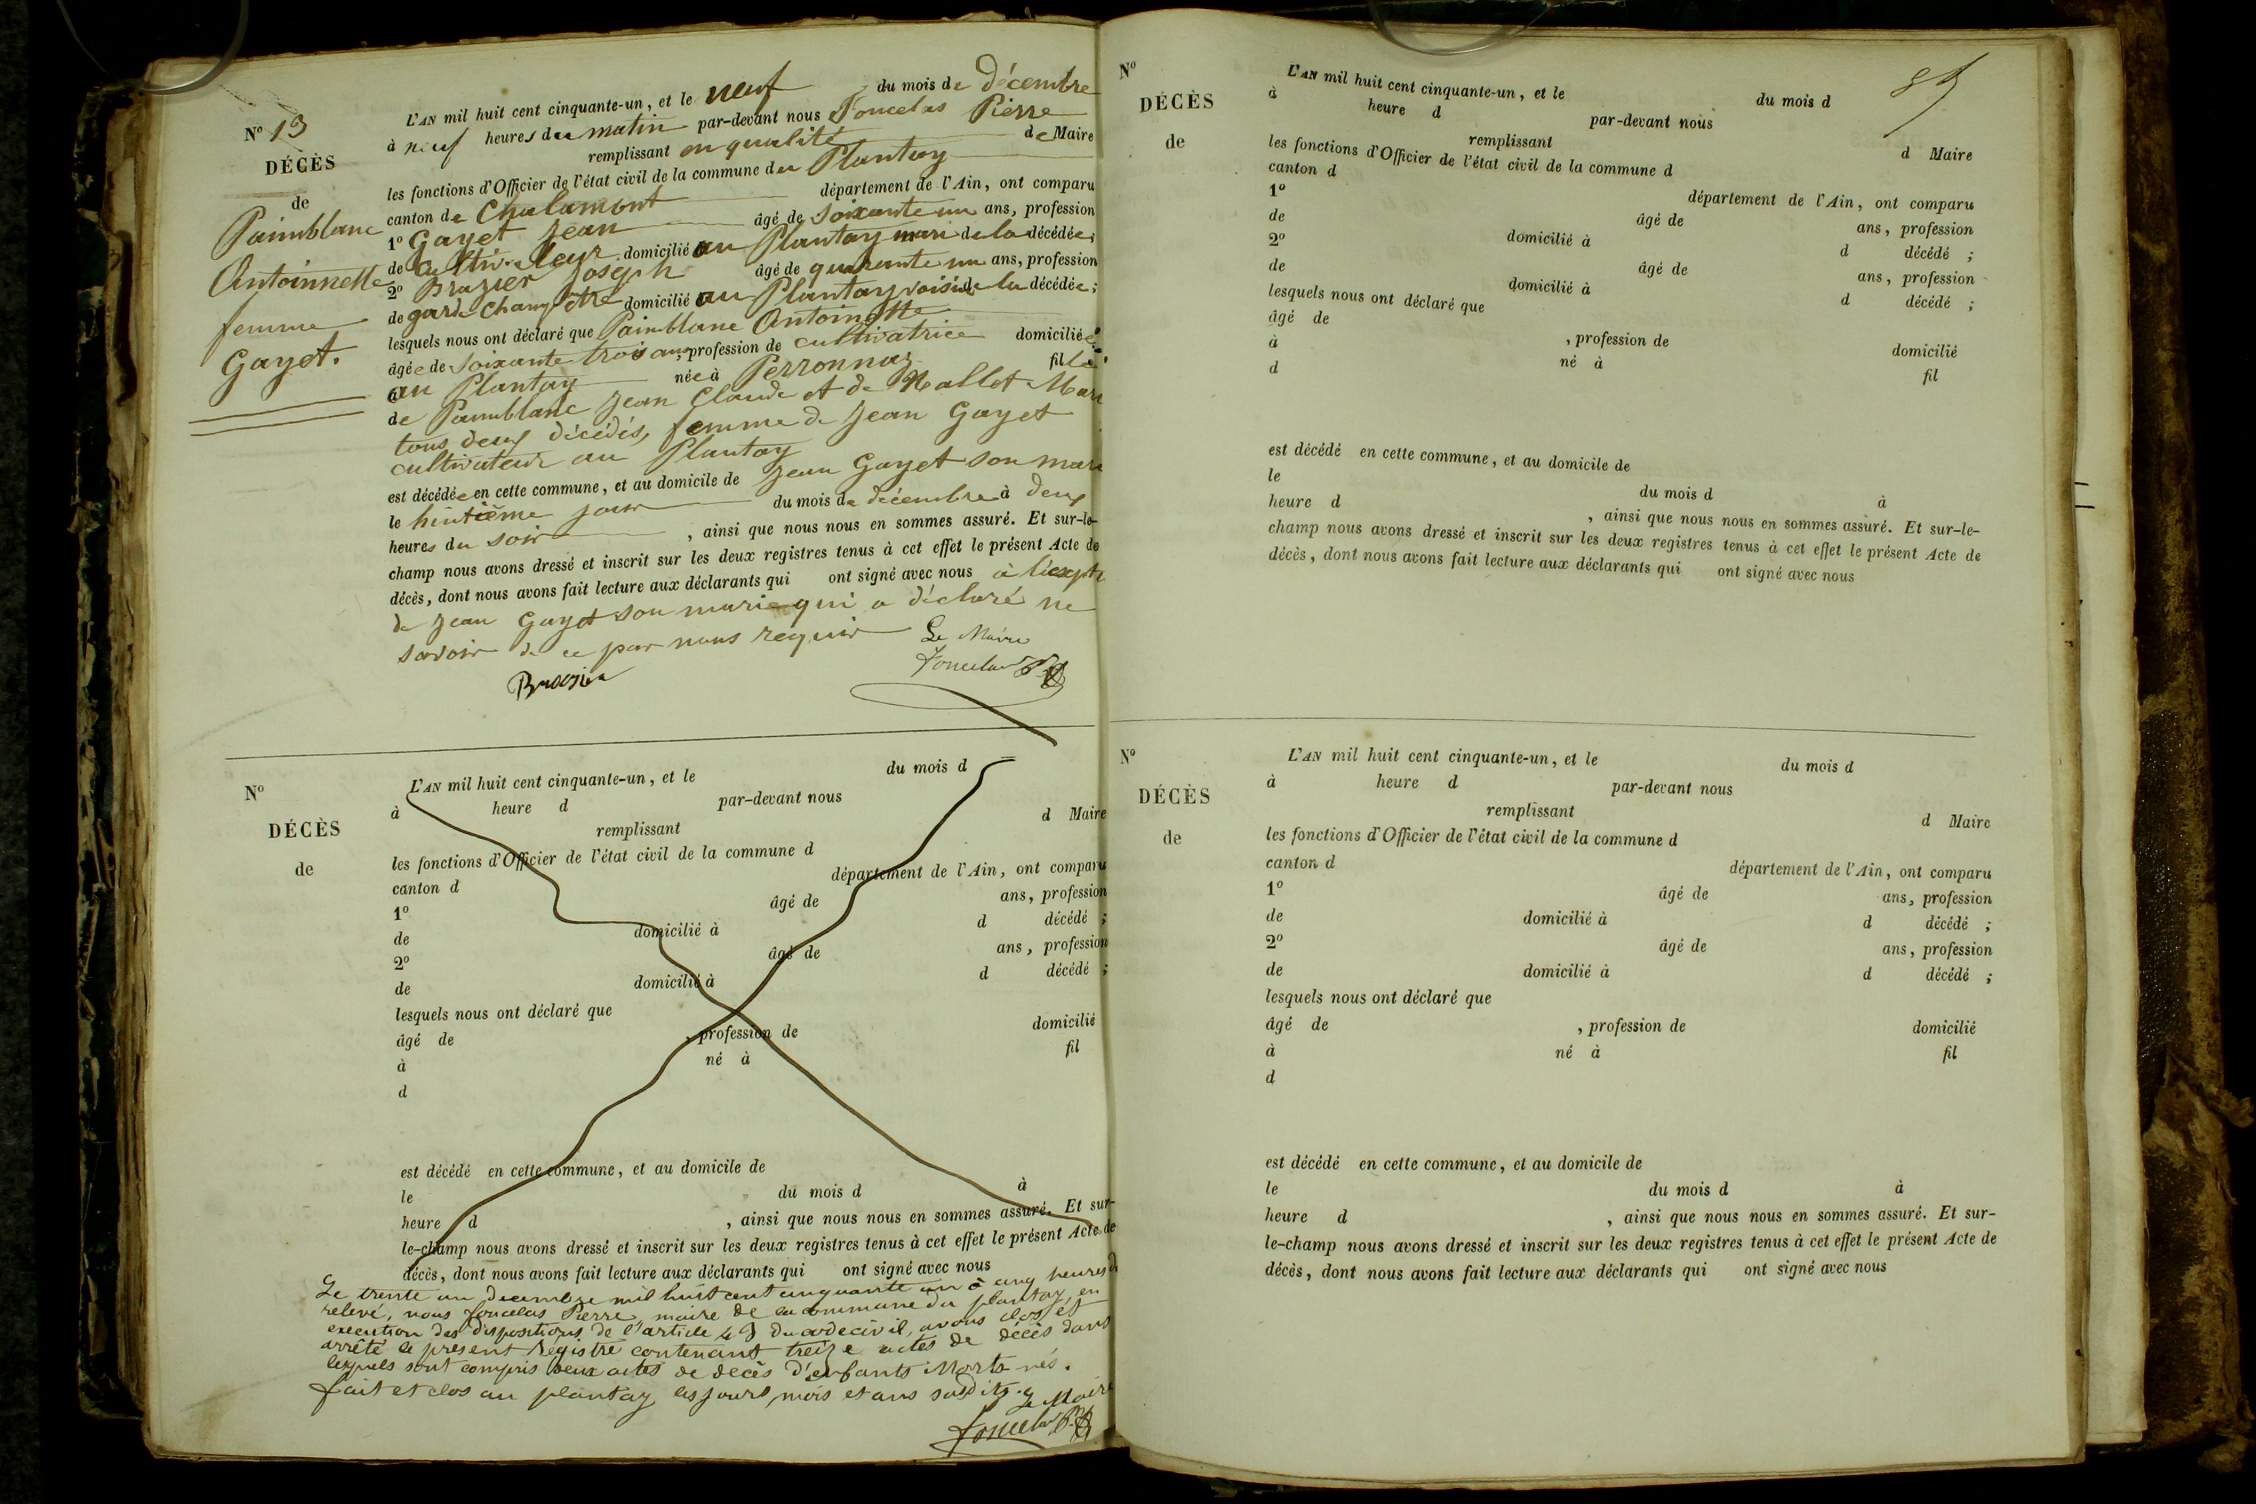 N° 13
DÉCÈS
de
Painblanc
Antoinnette
femme
Gayet.
L'AN mil huit cent cinquante-un, et le neuf du mois de Décembre
à neuf heures du matin par-devant nous Foncelas Pierre
remplissant en qualité de Maire
les fonctions d'Officier de l'état civil de la commune du Plantay
canton de Chalamont département de l'Ain, ont comparu
1° Gayet Jean âgé de soixante un ans, profession
de cultivateur domicilié au Plantay mari de la décédée;
2° Brazier Joseph âgé de quarante un ans, profession
de garde champêtre domicilié au Plantay voisin de la décédée;
lesquels nous ont déclaré que Painblanc Antoinette
âgée de soixante trois ans, profession de cultivatrice domiciliée
au Plantay née à Perronnaz fille
de Painblanc Jean Claude et de Nallet Mari
tous deux décédés, femme de Jean Gayet
cultivateur au Plantay
est décédée en cette commune, et au domicile de Jean Gayet son mari
le huitième jour du mois de décembre à deux
heures du soir, ainsi que nous nous en sommes assuré. Et sur-le-
champ nous avons dressé et inscrit sur les deux registres tenus à cet effet le présent Acte de
décès, dont nous avons fait lecture aux déclarants qui ont signé avec nous à l'except
de Jean Gayet son mari qui a déclaré ne
savoir de ce par nous requis
Le Maire
Foncelas P.
Brazier
N°
DÉCÈS
de
L'AN mil huit cent cinquante-un, et le du mois d
à heure d par-devant nous
remplissant d Maire
les fonctions d'Officier de l'état civil de la commune d
canton d département de l'Ain, ont comparu
1° âgé de ans, profession
de domicilié à d décédé ;
2° âgé de ans, profession
de domicilié à d décédé ;
lesquels nous ont déclaré que
âgé de , profession de domicilié
à né à fil
d
est décédé en cette commune, et au domicile de
le du mois d à
heure d , ainsi que nous nous en sommes assuré. Et sur-
le-champ nous avons dressé et inscrit sur les deux registres tenus à cet effet le présent Acte de
décès, dont nous avons fait lecture aux déclarants qui ont signé avec nous
Le trente un Decembre mil huit cent cinquante un à cinq heures d
relevé, nous Foncelas Pierre, maire de la commune du plantay, en
execution des dispositions de l'article 43 du code civil, avons clos et
arrêté le present Registre contenant treize actes de décès dans
lesquels sont compris deux actes de decès d'enfants Morts nés.
fait et clos au plantay les jours, mois et ans susdits. Le Maire
Foncelas P.
N°
DÉCÈS
de
L'AN mil huit cent cinquante-un, et le du mois d
à heure d par-devant nous
remplissant d Maire
les fonctions d'Officier de l'état civil de la commune d
canton d département de l'Ain, ont comparu
1° âgé de ans, profession
de domicilié à d décédé ;
2° âgé de ans, profession
de domicilié à d décédé ;
lesquels nous ont déclaré que
âgé de , profession de domicilié
à né à fil
d
est décédé en cette commune, et au domicile de
le du mois d à
heure d , ainsi que nous nous en sommes assuré. Et sur-le-
champ nous avons dressé et inscrit sur les deux registres tenus à cet effet le présent Acte de
décès, dont nous avons fait lecture aux déclarants qui ont signé avec nous
N°
DÉCÈS
de
L'AN mil huit cent cinquante-un, et le du mois d
à heure d par-devant nous
remplissant d Maire
les fonctions d'Officier de l'état civil de la commune d
canton d département de l'Ain, ont comparu
1° âgé de ans, profession
de domicilié à d décédé ;
2° âgé de ans, profession
de domicilié à d décédé ;
lesquels nous ont déclaré que
âgé de , profession de domicilié
à né à fil
d
est décédé en cette commune, et au domicile de
le du mois d à
heure d , ainsi que nous nous en sommes assuré. Et sur-
le-champ nous avons dressé et inscrit sur les deux registres tenus à cet effet le présent Acte de
décès, dont nous avons fait lecture aux déclarants qui ont signé avec nous